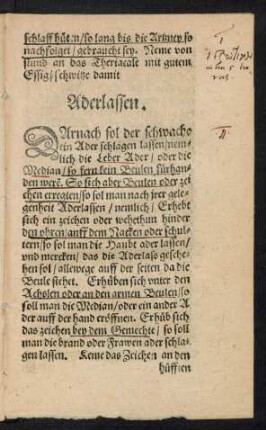 schlaff hüten/so lang bis die Artzney so
nachfolget/gebraucht sey. Neme von
stund an das Theriacale mit gutem
Essig/schwitze damit
Aderlassen.
DArnach sol der schwache
ein Ader schlagen lassen/nem-
lich die Leber Ader/oder die
Median/so fern kein Beulen fürhan-
den were. So sich aber Beulen oder zei
chen erregten/so sol man nach jrer gele-
genheit Aderlassen/nemlich/Erhebt
sich ein zeichen oder wehethun hinder
den ohren/auff dem Nacken oder schul-
tern/so sol man die Haubt ader lassen/
vnd mercken/das die Aderlass gesche-
hen sol/allewege auff der seiten da die
Beule stehet. Erhüben sich vnter den
Achslen oder an den armen Beulen/so
soll man die Median/oder ein ander A
der auff der hand eröffnen. Erhüb sich
das zeichen bey dem Gemechte/so soll
man die brand oder Frawen ader schla-
gen lassen. Keme das Zeichen an den
hüfften